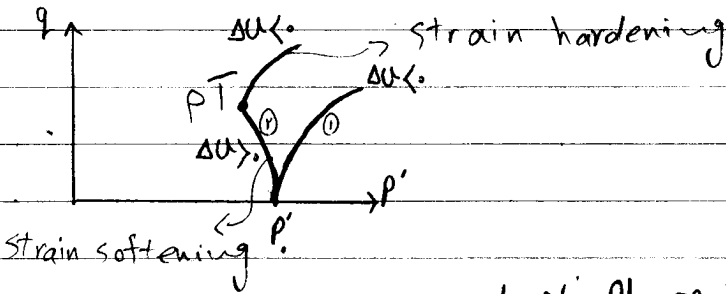 q
Δu<۰
strain hardening
Δu<۰
PT
۲
۱
Δu>۰
P'
P'۰
strain softening